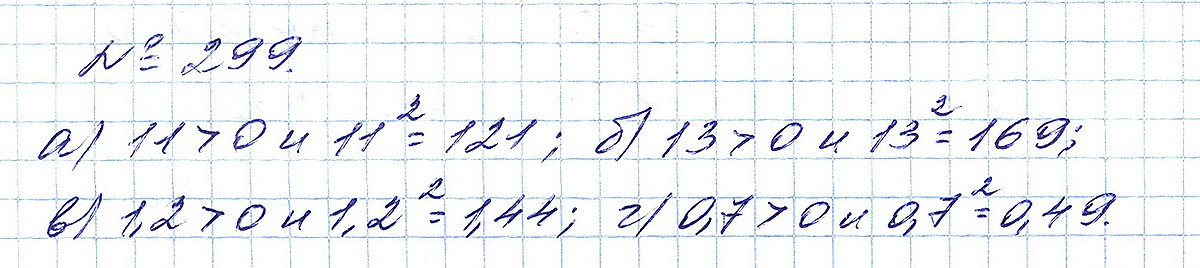 № 299.
а) 11 > 0 и 11² = 121; б) 13 > 0 и 13² = 169;
в) 1,2 > 0 и 1,2² = 1,44; г) 0,7 > 0 и 0,7² = 0,49.